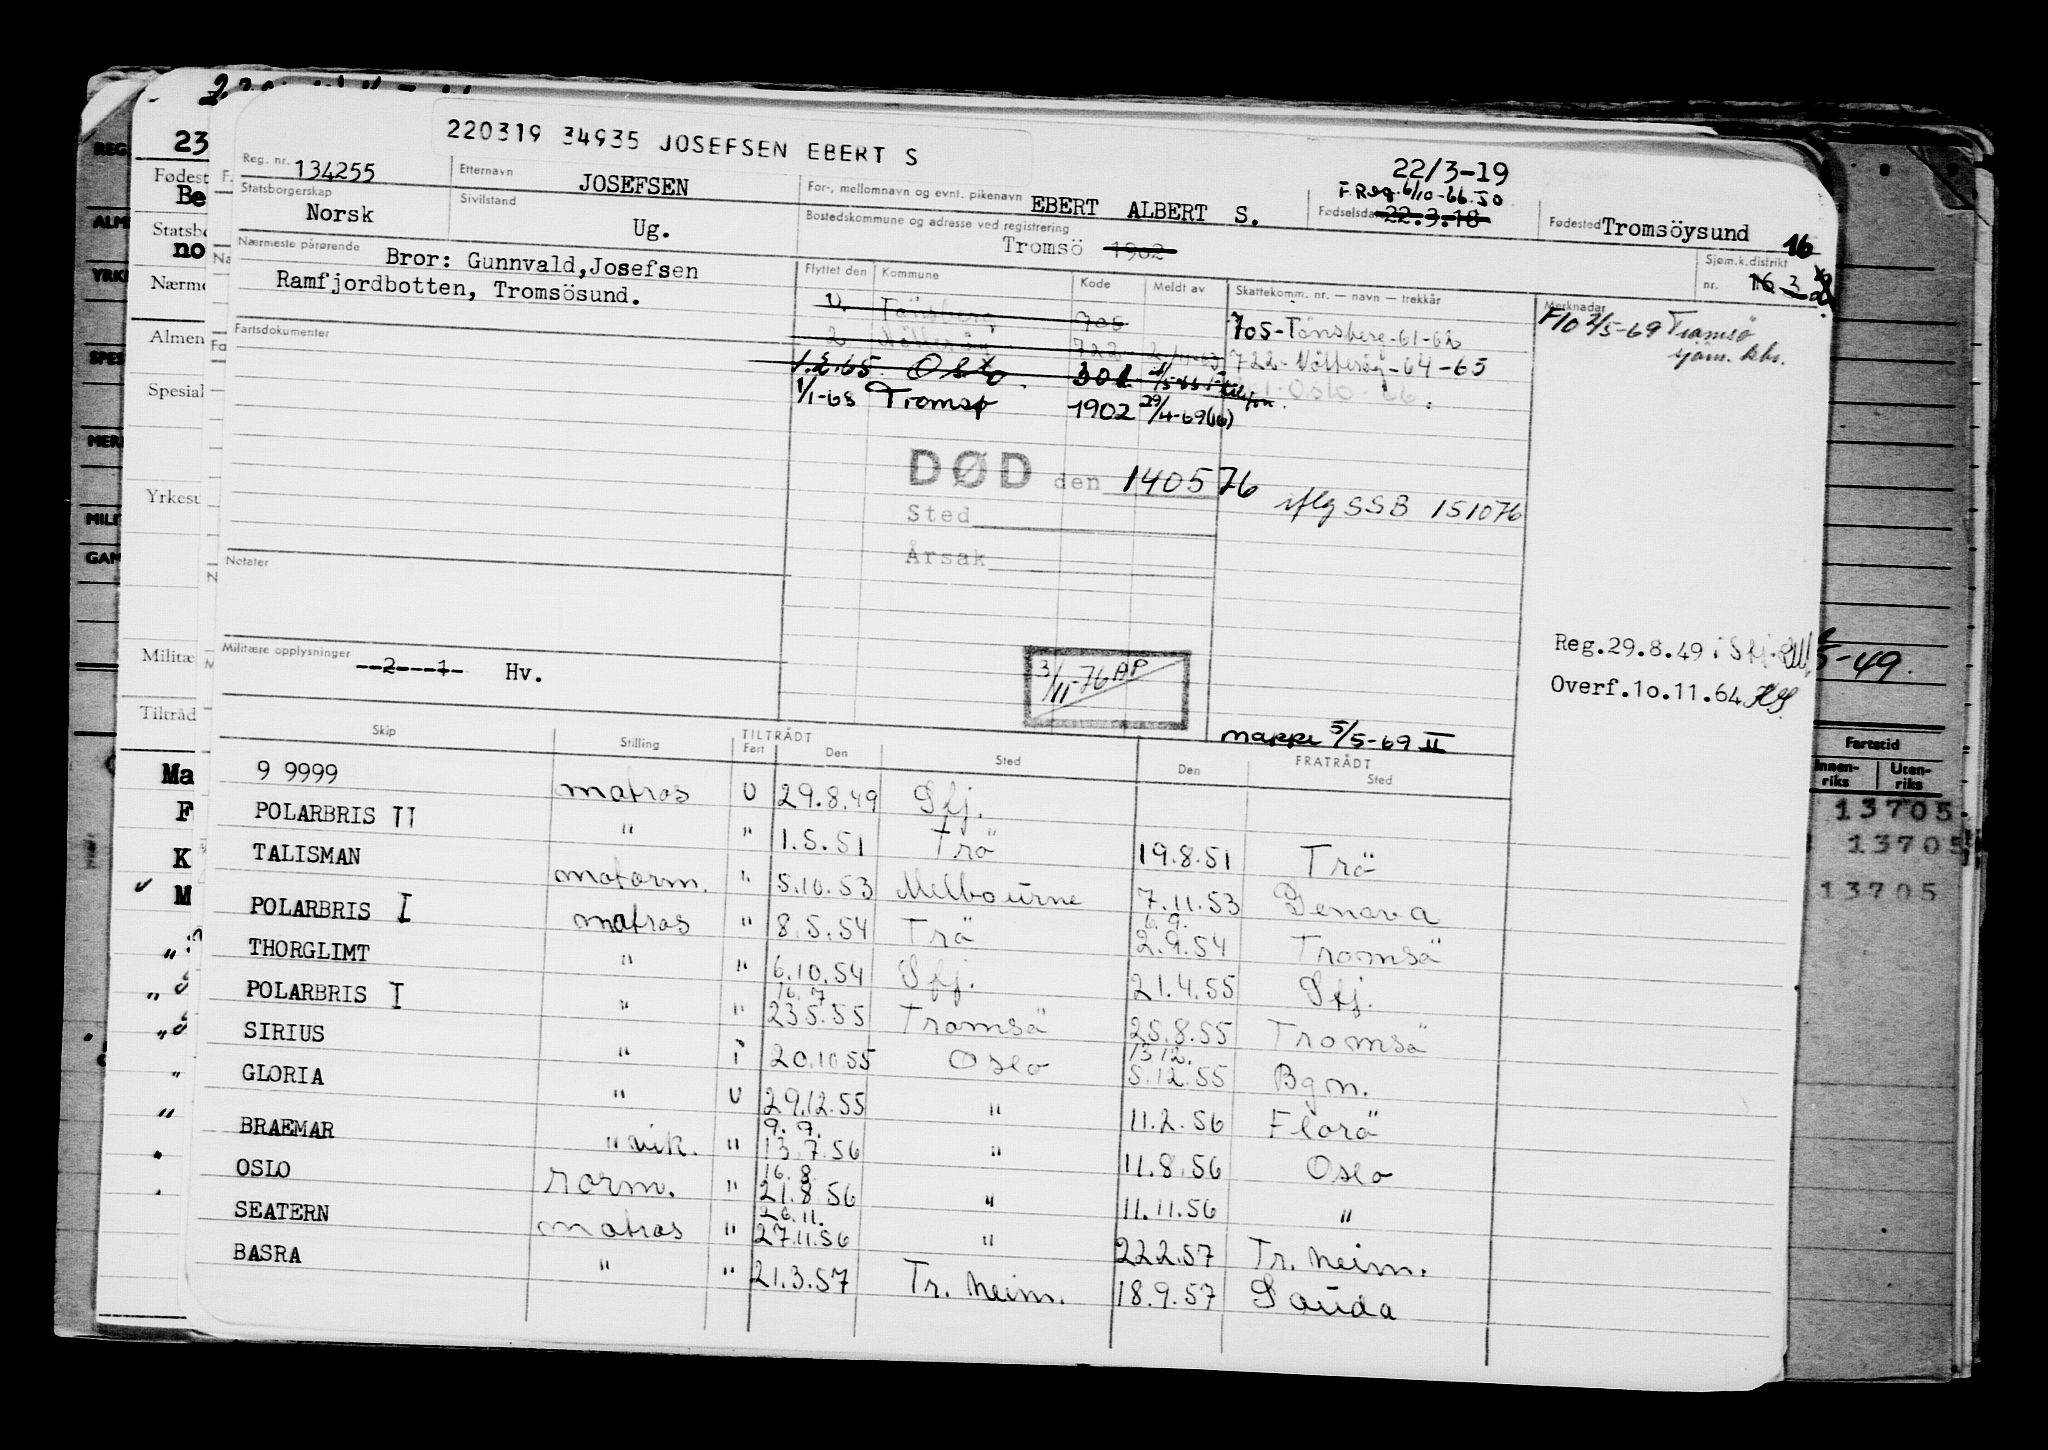 220319 34935 JOSEFSEN EBERT S
Reg. nr. 134255
Etternavn JOSEFSEN
For-, mellomnavn og evnt. pikenavn EBERT ALBERT S.
22/3-19
F.Reg. 6/10-66. JO
Fødselsda 22.3.18
Fødested Tromsöysund 16
Statsborgerskap Norsk
Sivilstand Ug.
Bostedskommune og adresse ved registrering
Tromsö 1902
Sjøm.k.distrikt
nr. 16 3
Nærmeste pårørende Bror: Gunnvald,Josefsen
Ramfjordbotten, Tromsösund.
Flyttet den Kommune Kode Meldt av Skattekomm. nr. — navn — trekkår Merknadar
U Tönsberg 705 705-Tönsberg-61-62
2 Nötteröy 722 722-Nötteröy-64-65
1.2.65 Oslo 301 Oslo-66
1/1-68 Tromsø 1902 29/4-69(16)
F10 2/5-69 Tromsö
sjøm. kks.
Fartsdokumenter
DØD den 140576 iflg SSB 151076
Sted
Årsak
Notater
Militære opplysninger --2---1- Hv.
3/11-76 AP
Reg.29.8.49 i Sfj.
Overf.1o.11.64
mappe 5/5-69 II
Skip Stilling TILTRÅDT Fart Den Sted Den FRATRÅDT Sted
9 9999 matros U 29.8.49 Sfj.
POLARBRIS II " " 1.5.51 Trö 19.8.51 Trö
TALISMAN motorm. " 5.10.53 Melbourne 7.11.53 Genova
POLARBRIS I matros " 8.5.54 Trö 6.9. 2.9.54 Tromsö
THORGLIMT " " 6.10.54 Sfj. 21.4.55 Sfj.
POLARBRIS I " " 16.7 23.5.55 Tromsö 25.8.55 Tromsö
SIRIUS " i 20.10.55 Oslo 13.12. 5.12.55 Bgm.
GLORIA " U 29.12.55 " 11.2.56 Florö
BRAEMAR " vik. " 9.7. 13.7.56 " 11.8.56 Oslo
OSLO rorm. " 16.8. 21.8.56 " 11.11.56 "
SEATERN matros " 26.11. 27.11.56 " 22.2.57 Tr.heim.
BASRA " " 21.3.57 Tr.heim. 18.9.57 Sauda
REG.
ALM
YRK
SPES
MER
MILI
GAM
23
Fødest
Be
Statsb
no
Nærme
Almen
Spesial
Yrkesu
Militæ
Tiltråd
Ma
F
K
M
-49.
Fartstid
Innen-
riks
Uten-
riks
13705
13705
13705